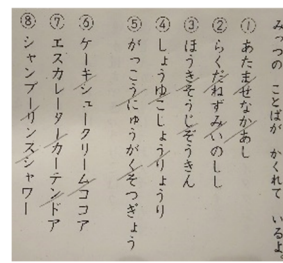 みっつの ことばが かくれて いるよ。
①あたませなかあし
②らくだねずみいのしし
③ほうきそうじぞうきん
④しょうゆこしょうりょうり
⑤がっこうにゅうがくそつぎょう
⑥ケーキシュークリームココア
⑦エスカレーターカーテンドア
⑧シャンプーリンスシャワー